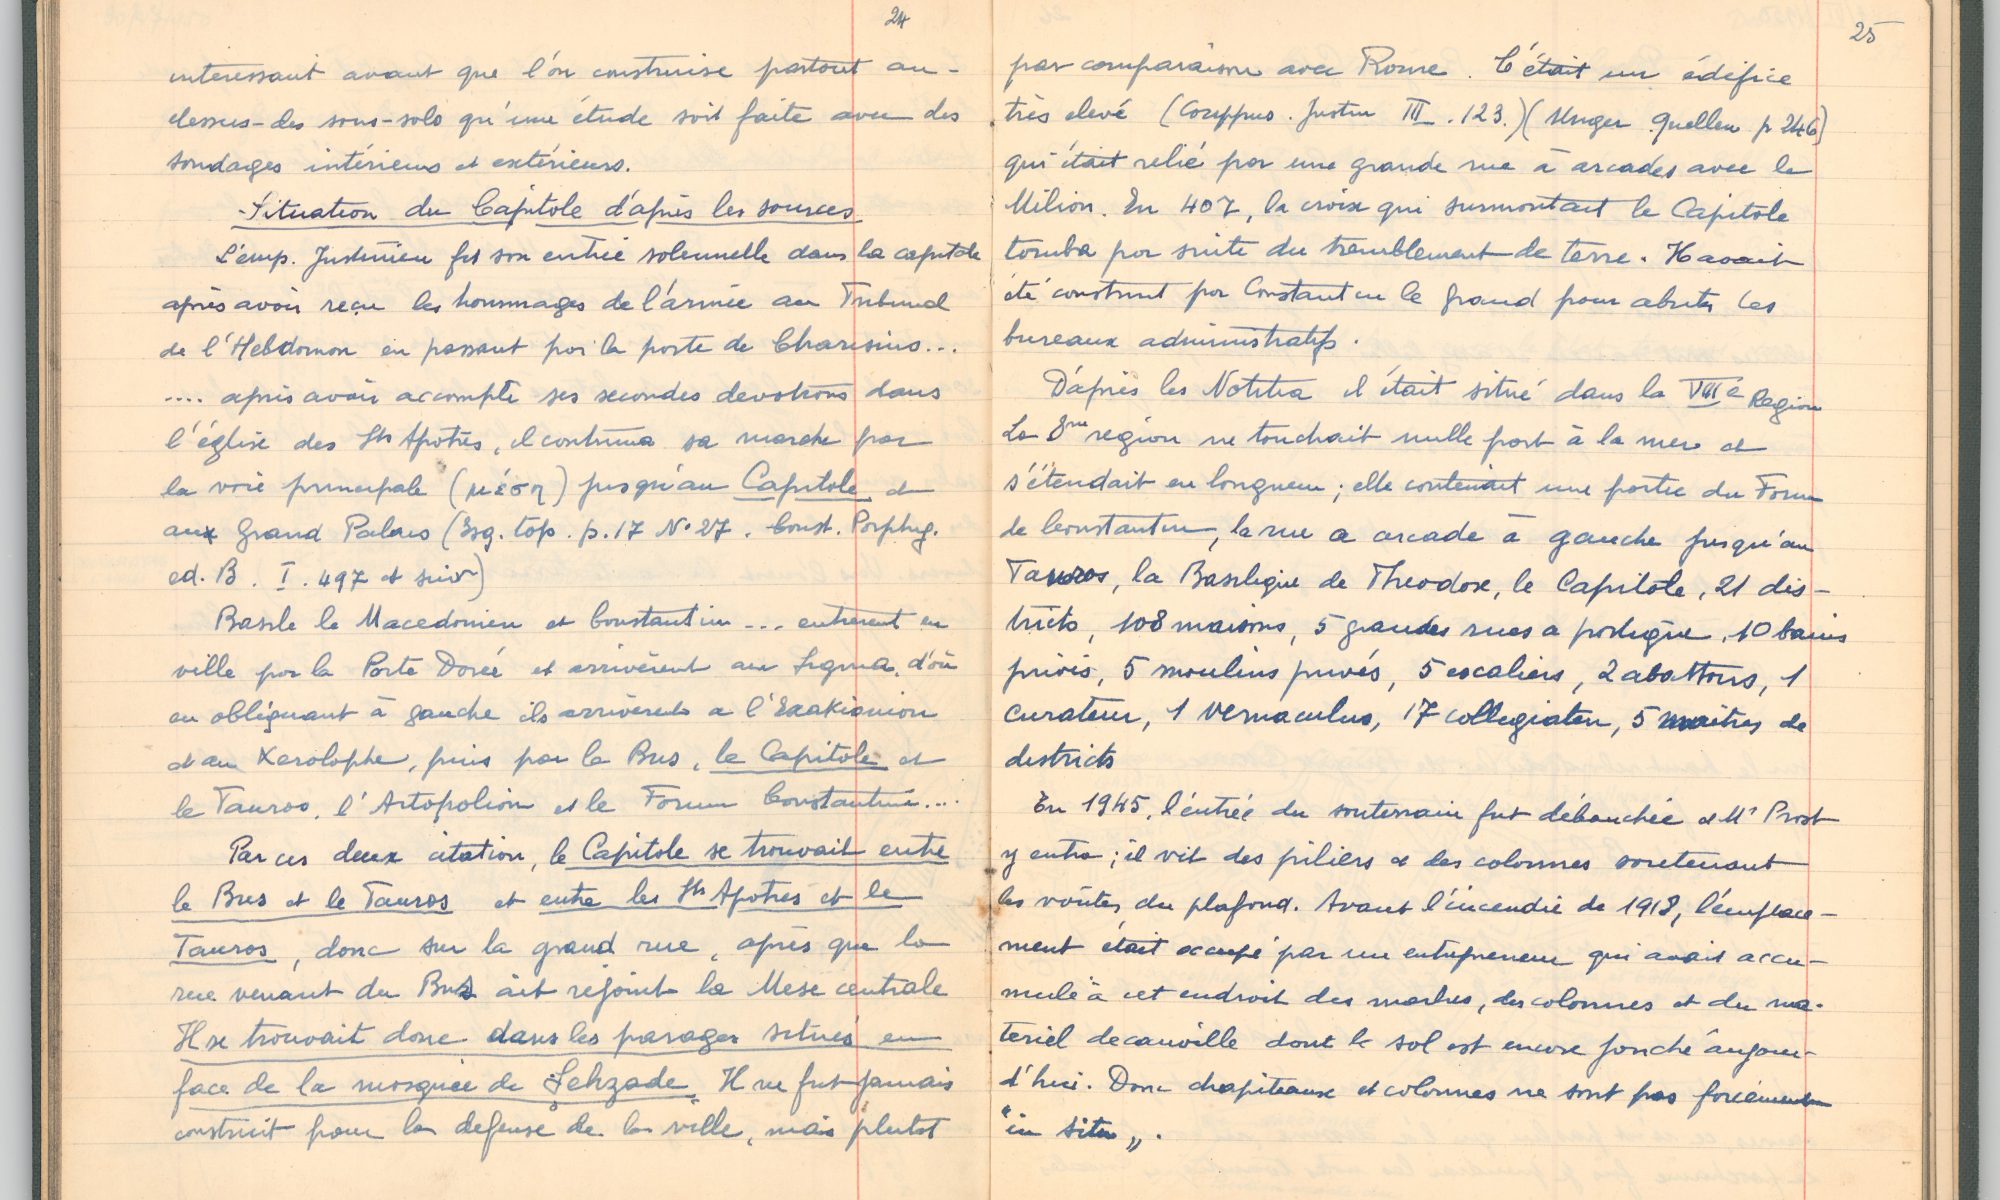 24
interessant avant que l'on construise partout au-
dessus-des sous-sols qu'une étude soit faite avec des
sondages intérieurs et extérieurs.
Situation du Capitole d'après les sources
L'emp. Justinien fit son entrée solennelle dans la capitale
après avoir reçu les hommages de l'armée au Tribunal
de l'Hebdomon en passant par la porte de Charisius...
.... après avoir accompli ses secondes devotions dans
l'église des Sts Apôtres, il continua sa marche par
la voie principale (μέση) jusqu'au Capitole et
aux Grand Palais (Esq. top. p. 17 No 27. Const. Porphyg.
ed. B. I. 497 et suiv)
Basile le Macedonien et Constantin ... entrèrent en
ville par la Porte Dorée et arrivèrent au Sigma, d'où
en obliquant à gauche ils arrivèrent a l'Exakionion
et au Xerolophe, puis par le Bus, le Capitole et
le Tauros, l'Artopolion et le Forum Constantin....
Par ces deux citation, le Capitole se trouvait entre
le Bus et le Tauros et entre les Sts Apôtres et le
Tauros, donc sur la grand rue, après que la
rue venant du Bus ait rejoint la Mese centrale
Il se trouvait donc dans les parages situés en
face de la mosquée de Şehzade. Il ne fut jamais
construit pour la defense de la ville, mais plutot
25
par comparaison avec Rome. C'était un édifice
très elevé (Corippus. Justin III. 123.) (Unger Quellen p 246)
qui était relié par une grande rue à arcades avec le
Milion. En 407, la croix qui surmontait le Capitole
tomba par suite du tremblement de terre. Il avait
été construit par Constantin le Grand pour abriter les
bureaux administratifs.
D'après les Notitia il était situé dans la VIIIe Region
La 8me region ne touchait nulle part à la mer et
s'étendait en longueur; elle contenait une partie du Forum
de Constantin, la rue a arcade à gauche jusqu'au
Tauros, la Basilique de Theodose, le Capitole, 21 dis-
tricts, 108 maisons, 5 grandes rues a portique, 10 bains
privés, 5 moulins privés, 5 escaliers, 2 abattoirs, 1
curateur, 1 vernaculus, 17 collegiaten, 5 maîtres de
districts
En 1945, l'entrée du souterrain fut débouchée et Mr Prost
y entra; il vit des piliers et des colonnes soutenant
les voûtes du plafond. Avant l'incendie de 1918, l'emplace-
ment était occupé par un entrepreneur qui avait accu-
mulé à cet endroit des marbres, des colonnes et du ma-
teriel decauville dont le sol est encore jonché aujour-
d'hui. Donc chapiteaux et colonnes ne sont pas forcément
"in situ".